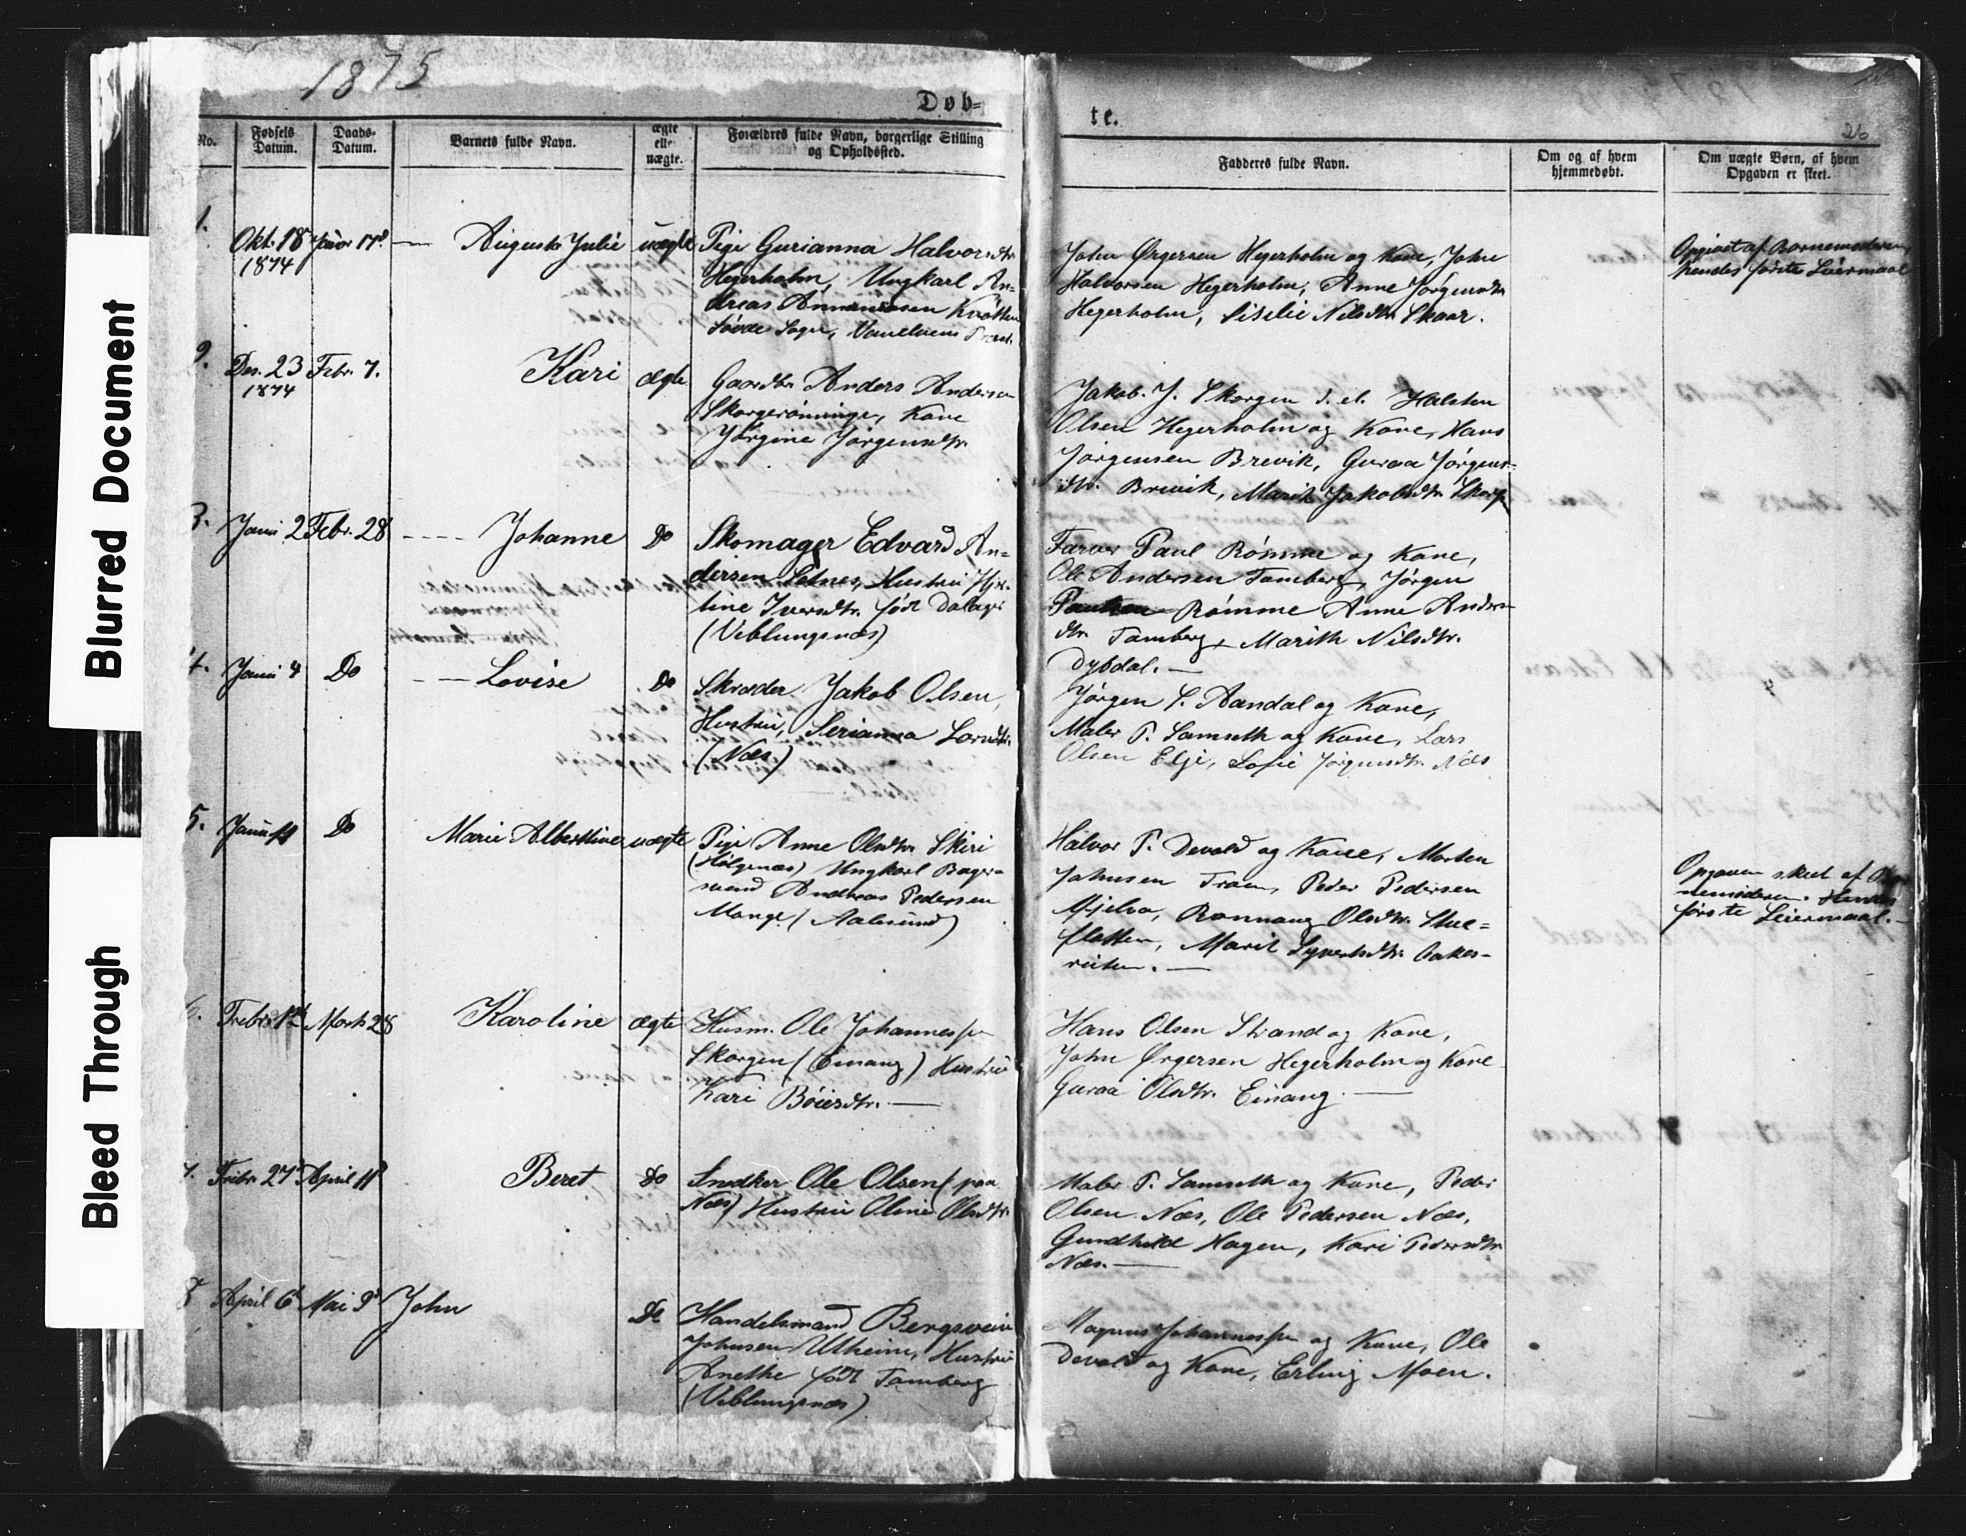 1875
Døb-
No.
Fødsels Datum.
Daabs-Datum.
Barnets fulde Navn.
ægte eller uægte.
Forældres fulde Navn, borgerlige Stilling og Opholdssted.
te.
26
Fadderes fulde Navn.
Om og af hvem hjemmedøbt.
Om uægte Børn, af hvem Opgaven er skeet.
Blurred Document
Bleed Through
1.
Okt. 18 Januar 17de — Augusta Julie uægte Pige Gurianna Halvorsdtr
1874
Hegerholm, Ungkarl An-
dreas
Søvde Sogn, Vanelvens
John Ørgersen Hegerholm og Kone, John
Halvorsen Hegerholm, Anne Jørgensdtr
Hegerholm, Siselie Nilsdtr Skaar.
Opgivet af Barnemoderen,
hendes første Leiermaal
2.
Des. 23 Febr. 7. Kari ægte Gaardbr. Anders Andersen
1874
Skorgerønninge, Kone
Jørgine Jørgensdtr.
Jakob. J. Skorgen s. el. Halsten
Olsen Hegerholm og Kone, Hans
Jørgensen Brevik, Guraa Jørgens-
dtr. Brevik, Marit Jakobsdtr
3. Janu 2 Febr. 28 ---- Johanne Do Skomager Edvard An-
dersen Setnes, Hustru
line Iversdtr. født
(Veblungsnæs)
Farver Paul Rømme og Kone,
Ole Andersen Tomberg, Jørgen
Rømme Anne Anders-
dtr. Tomberg, Marith Nilsdtr.
Dybdal. —
4. Janu 4 Do — — Lovise Do Skræder Jakob Olsen,
Hustru, Serianna
(Næs)
Jørgen S. Aandal og Kone,
Maler P. Samseth og Kone, Lars
Olsen Elje, Jørgensdtr. Næs
5. Janu Do Marie Albertine uægte Pige Anne Olsdtr Skiri
Ungkarl Bager-
svend Andreas Pedersen
(Aalesund)
Halvor P. Devold og Kone, Morten
Johnsen Troen, Peder Pedersen
Mjelva, Rannaug Olsdtr. Stue-
flotten, Marit Syvertsdtr.
Opgaven skeet af
nemoderen. Hendes
første Leiermaal. —
6. Febr. Marts 28 Karoline ægte Husm. Ole Johannessen
Skorgen (Einang) Hustru
Kari Bøiesdtr. —
Hans Olsen Strand og Kone,
John Ørgersen Hegerholm og Kone
Guraa Olsdtr. Einang. —
7. Febr. 27 April 11 Beret Do Snedker Ole Olsen (paa
Næs) Hustru Oline Olsdtr.
Maler P. Samseth og Kone, Peder
Olsen Næs, Ole Pedersen Næs,
Gundhild Hagen, Kari Pedersdtr
Næs. —
8 April 6te Mai 9de John Do Handelsmand Bergsvein
Johnsen Utheim, Hustru
Anethe født Tomberg
(Veblungsnæs)
Magnus Johannessen og Kone, Ole
Devold og Kone, Erling Moen.